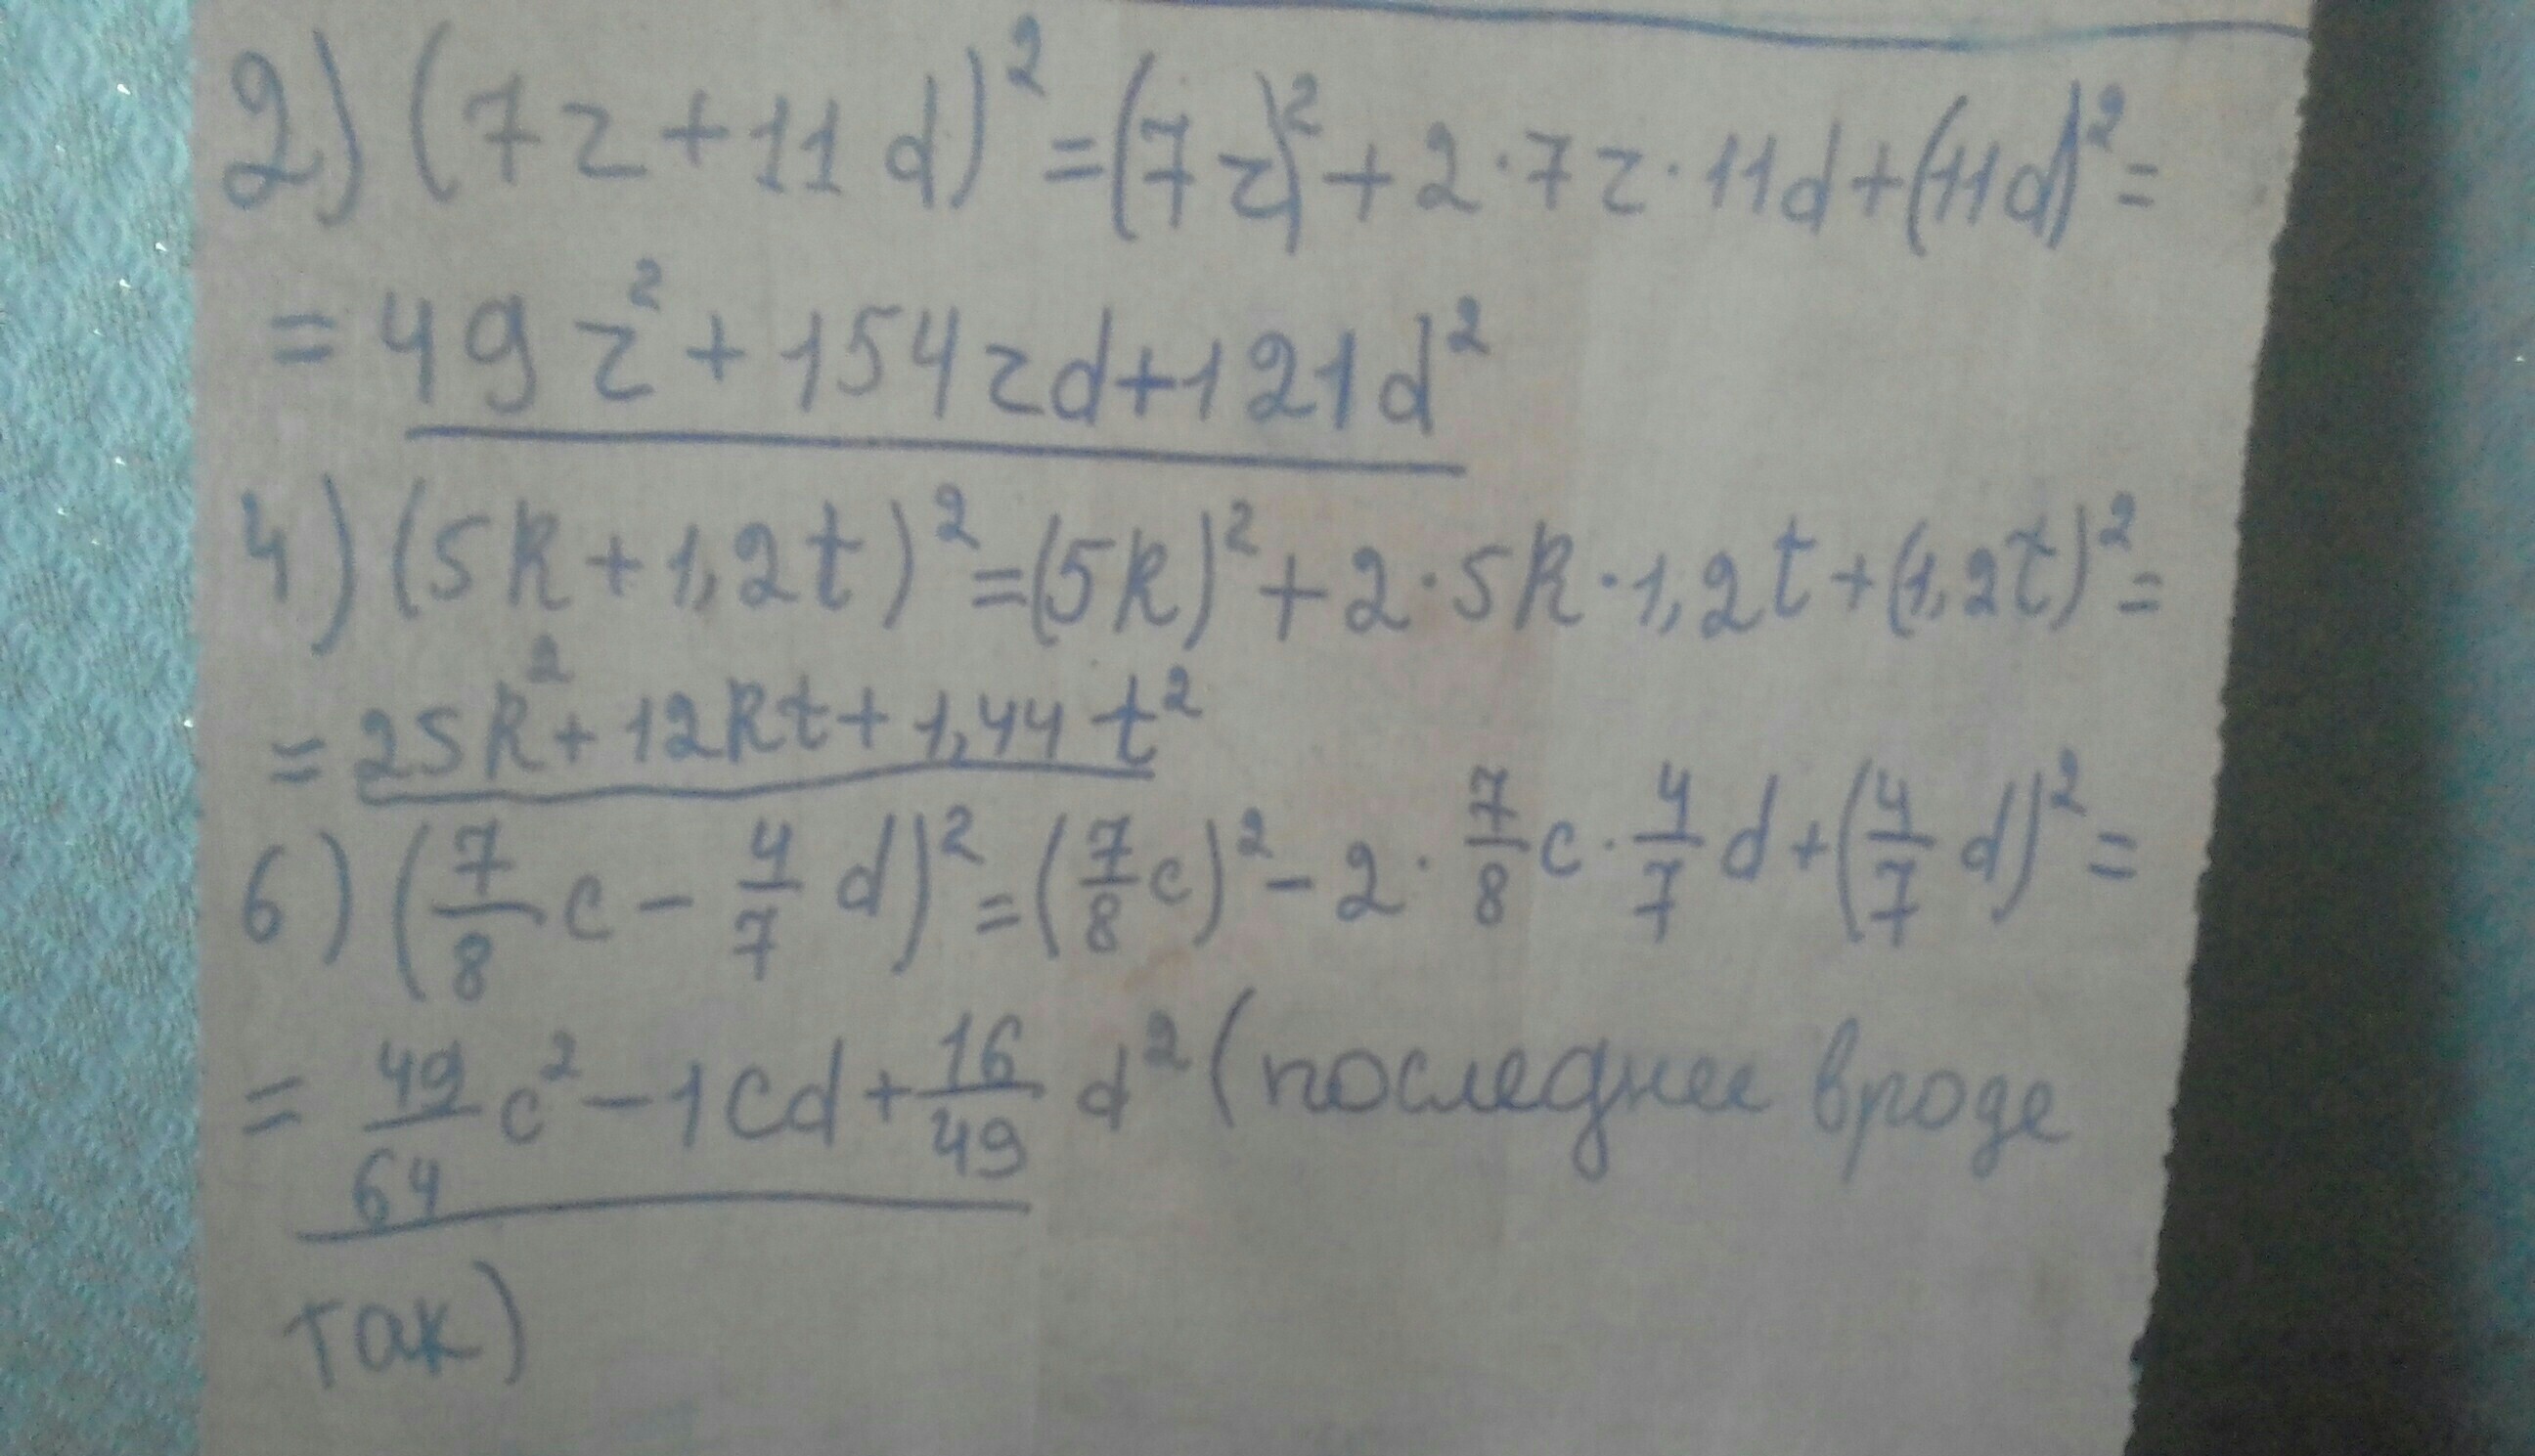 2) (7z+11d)²=(7z)²+2·7z·11d+(11d)²=
=49z²+154zd+121d²
4) (5k+1,2t)²=(5k)²+2·5k·1,2t+(1,2t)²=
=25k²+12kt+1,44t²
6) (7/8 c - 4/7 d)²=(7/8 c)²-2·7/8 c·4/7 d+(4/7 d)²=
=49/64 c²-1cd+16/49 d² (последнее вроде
так)